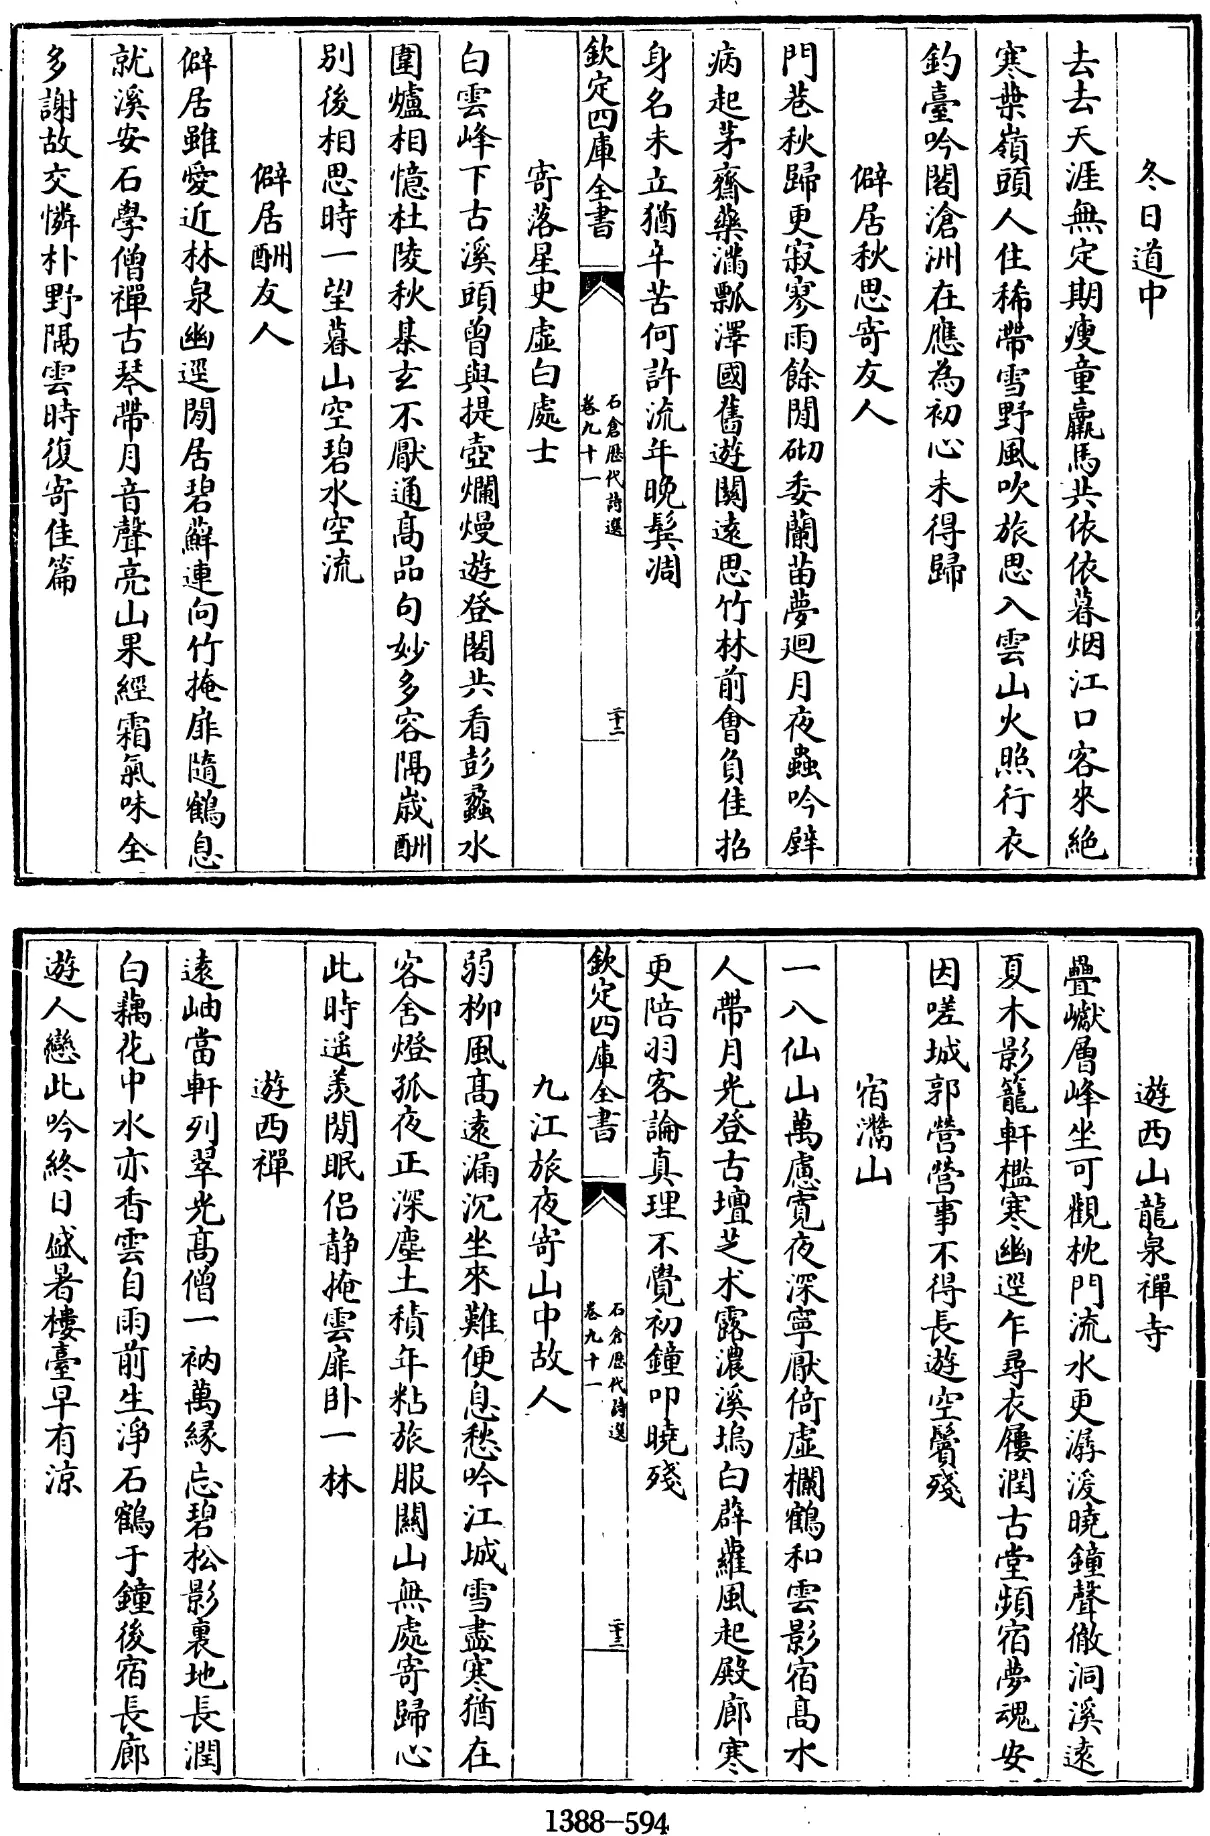 冬日道中
去去天涯無定期瘦童羸馬共依依暮烟江口客來絶
寒葉嶺頭人住稀帶雪野風吹旅思入雲山火照行衣
釣臺吟閣滄洲在應為初心未得歸
僻居秋思寄友人
門巷秋歸更寂寥雨餘閒砌委蘭苗夢廻月夜蟲吟壁
病起茅齋藥滿瓢澤國舊遊關遠思竹林前會負佳招
身名未立猶辛苦何許流年晚鬂凋
欽定四庫全書
石倉歴代詩選
卷九十一
二十二
寄落星史虚白處士
白雲峰下古溪頭曽與提壺爛熳遊登閣共看彭蠡水
圍爐相憶杜陵秋棊玄不厭通髙品句妙多容隔歳酬
别後相思時一望暮山空碧水空流
僻居酬友人
僻居雖愛近林泉幽逕閒居碧蘚連向竹掩扉隨鶴息
就溪安石學僧禪古琴帶月音聲亮山果經霜氣味全
多謝故交憐朴野隔雲時復寄佳篇
遊西山龍泉禪寺
疊巘層峰坐可觀枕門流水更潺湲曉鐘聲徹洞溪遠
夏木影籠軒檻寒幽逕乍尋衣屨潤古堂頻宿夢魂安
因嗟城郭營營事不得長遊空鬢殘
宿灊山
一入仙山萬慮寛夜深寧厭倚虚欄鶴和雲影宿髙木
人帶月光登古壇芝术露濃溪塢白薜蘿風起殿廊寒
更陪羽客論真理不覺初鐘叩曉殘
欽定四庫全書
石倉歴代詩選
卷九十一
二十三
九江旅夜寄山中故人
弱栁風髙遠漏沉坐來難便息愁吟江城雪盡寒猶在
客舍燈孤夜正深塵土積年粘旅服關山無處寄歸心
此時遥羡閒眠侣静掩雲扉卧一林
遊西禪
遠岫當軒列翠光髙僧一衲萬縁忘碧松影裏地長潤
白藕花中水亦香雲自雨前生淨石鶴于鐘後宿長廊
遊人戀此吟終日盛暑樓臺早有涼
1388—594